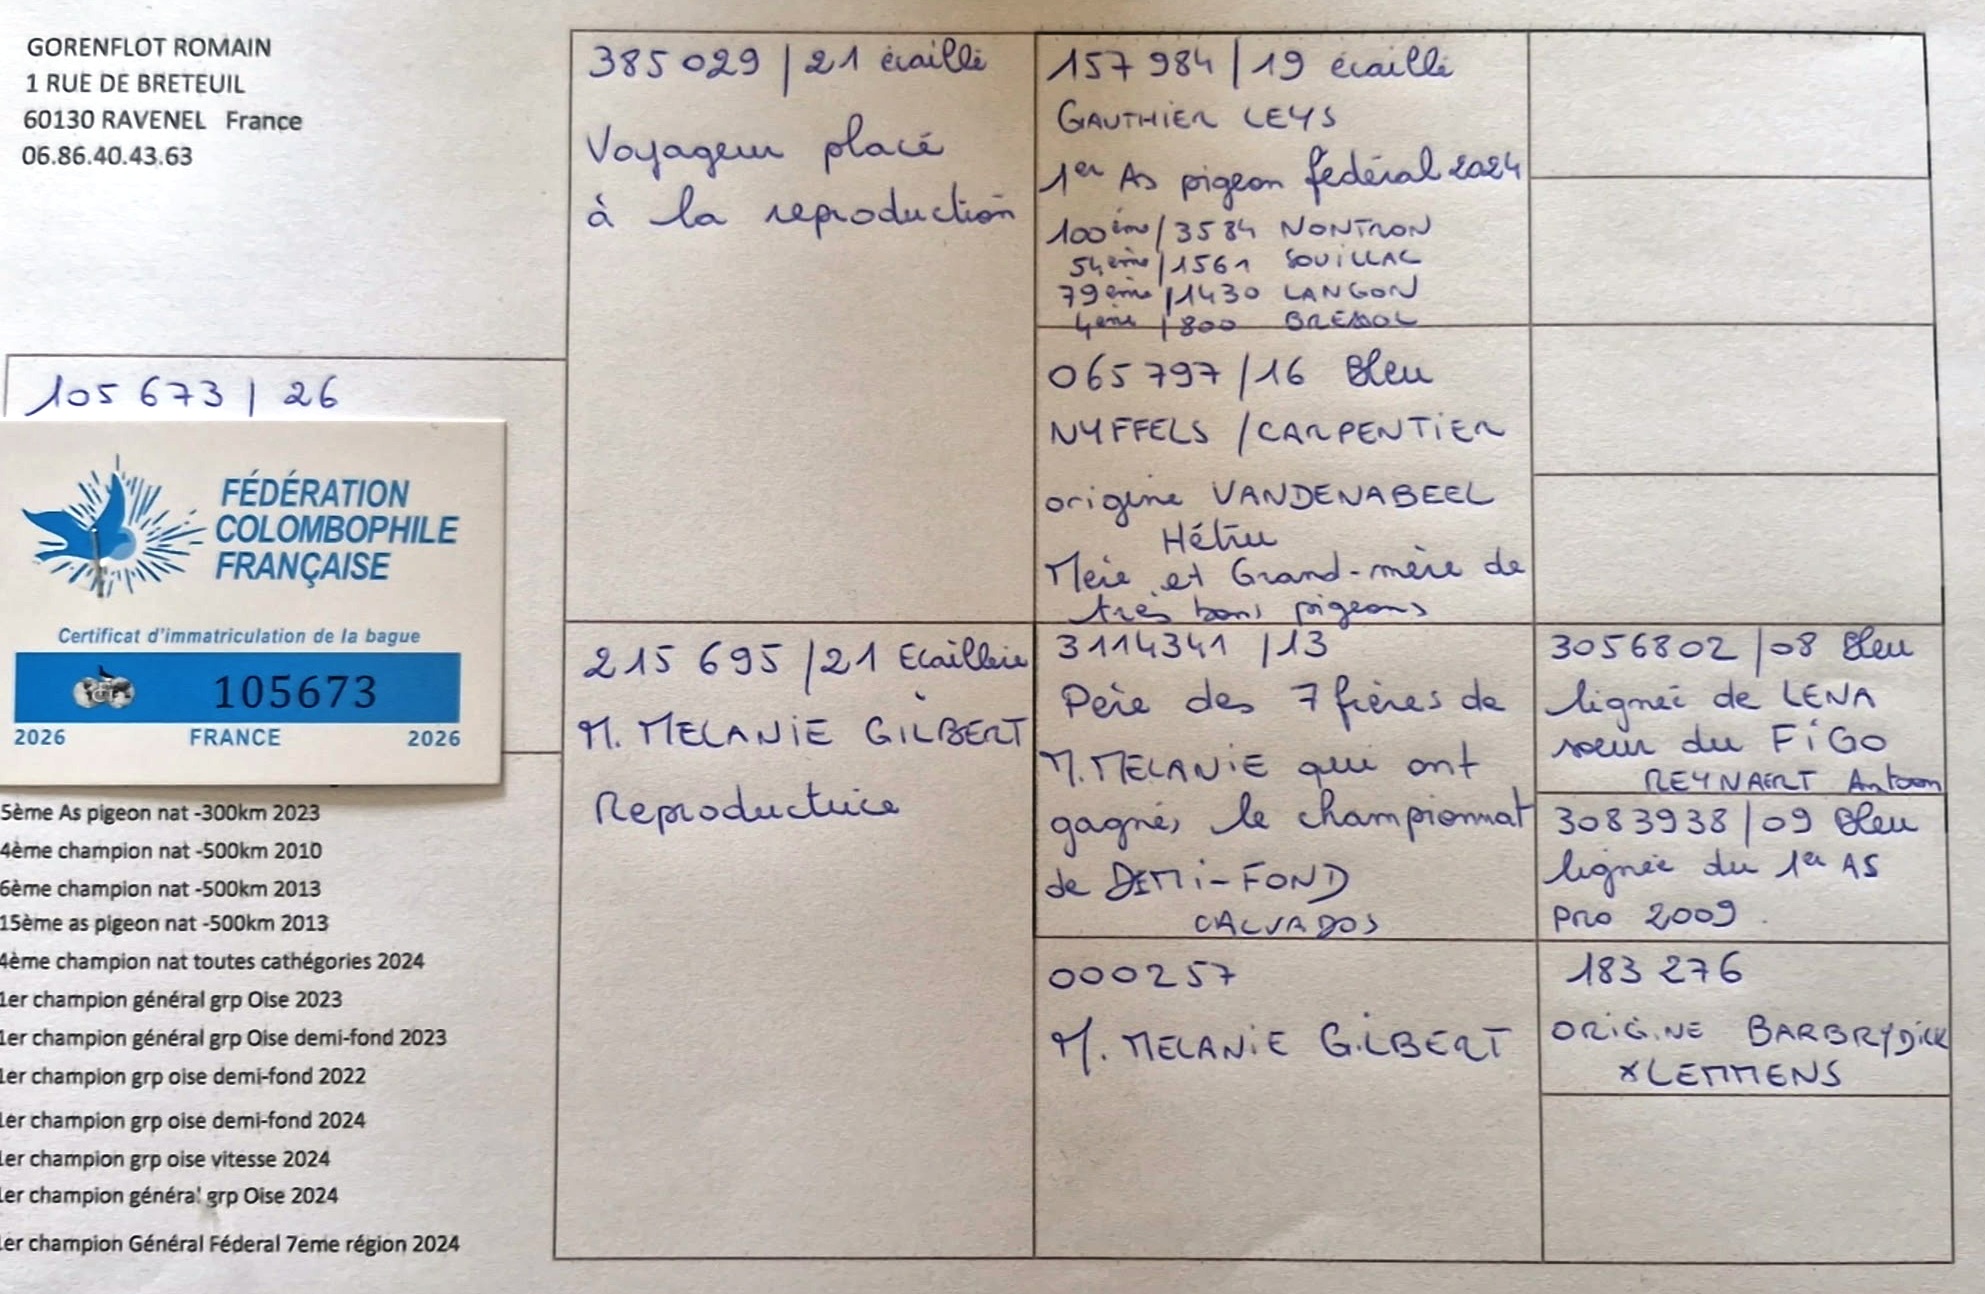 GORENFLOT ROMAIN
1 RUE DE BRETEUIL
60130 RAVENEL France
06.86.40.43.63
105 673 / 26
FÉDÉRATION
COLOMBOPHILE
FRANÇAISE
Certificat d'immatriculation de la bague
105673
2026 FRANCE 2026
5ème As pigeon nat -300km 2023
4ème champion nat -500km 2010
6ème champion nat -500km 2013
15ème as pigeon nat -500km 2013
4ème champion nat toutes cathégories 2024
1er champion général grp Oise 2023
1er champion général grp Oise demi-fond 2023
1er champion grp oise demi-fond 2022
1er champion grp oise demi-fond 2024
1er champion grp oise vitesse 2024
1er champion général grp Oise 2024
1er champion Général Féderal 7eme région 2024
385 029 / 21 écaillé
Voyageur placé
à la reproduction
215 695 / 21 Ecaillée
M. MELANIE GILBERT
Reproductrice
157 984 / 19 écaillé
GAUTHIER LEYS
1er As pigeon fédéral 2024
100ème / 3584 NONTRON
54ème / 1561 SOUILLAC
79ème / 1430 LANGON
4ème / 800 BRESSOL
065 797 / 16 Bleu
NYFFELS / CARPENTIER
origine VANDENABEEL
Mère et Grand-mère de
très bons pigeons
3114341 / 13
Père des 7 frères de
M. MELANIE qui ont
gagnés le championnat
de DEMI-FOND
CALVADOS
000257
M. MELANIE GILBERT
3056802 / 08 Bleu
lignée de LENA
soeur du FIGO
REYNAERT Antoon
3083938 / 09 Bleu
lignée du 1er AS
pro 2009.
183 276
ORIGINE BARBRY DICK
x LEMMENS